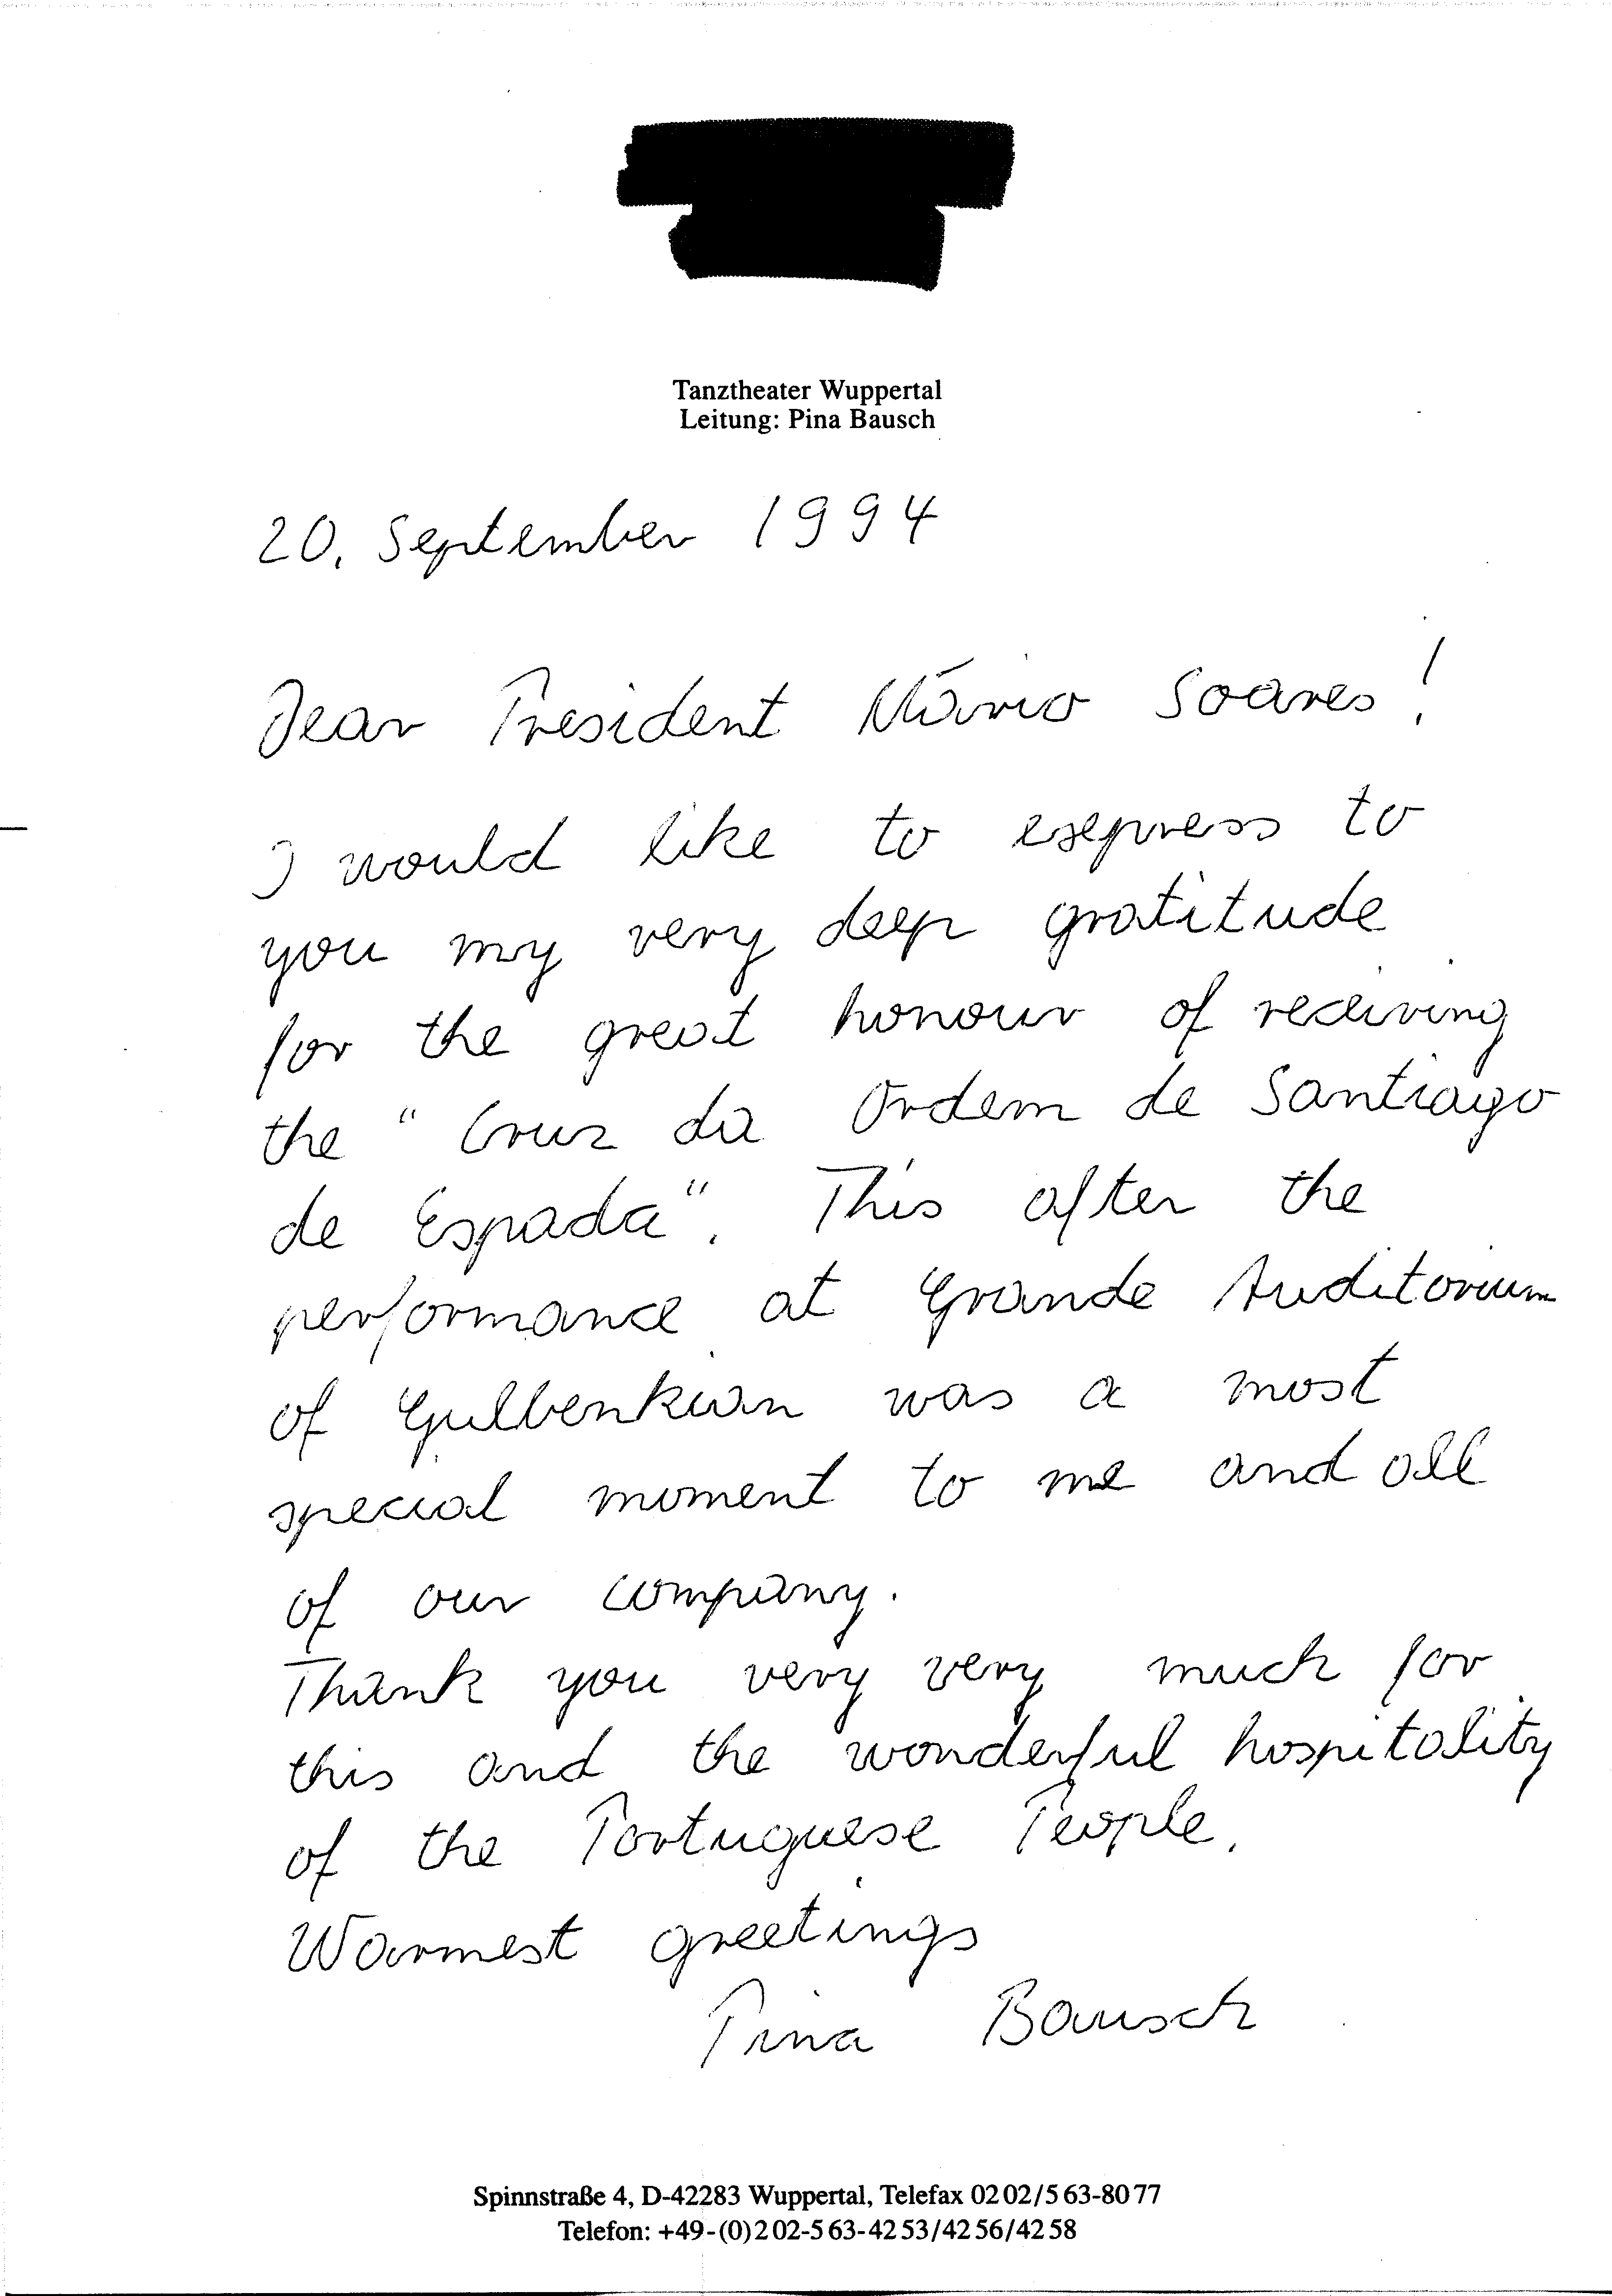 Tanztheater Wuppertal
Leitung: Pina Bausch
20. September 1994
Dear President Mário Soares!
I would like to express to
you my very deep gratitude
for the great honour of receiving
the "Cruz da Ordem de Santiago
de Espada". This after the
performance at Grande Auditorium
of Gulbenkian was a most
special moment to me and all
of our company.
Thank you very very much for
this and the wonderful hospitality
of the Portuguese People.
Warmest greetings
Pina Bausch
Spinnstraße 4, D-42283 Wuppertal, Telefax 02 02/5 63-80 77
Telefon: +49-(0)2 02-5 63-42 53/42 56/42 58